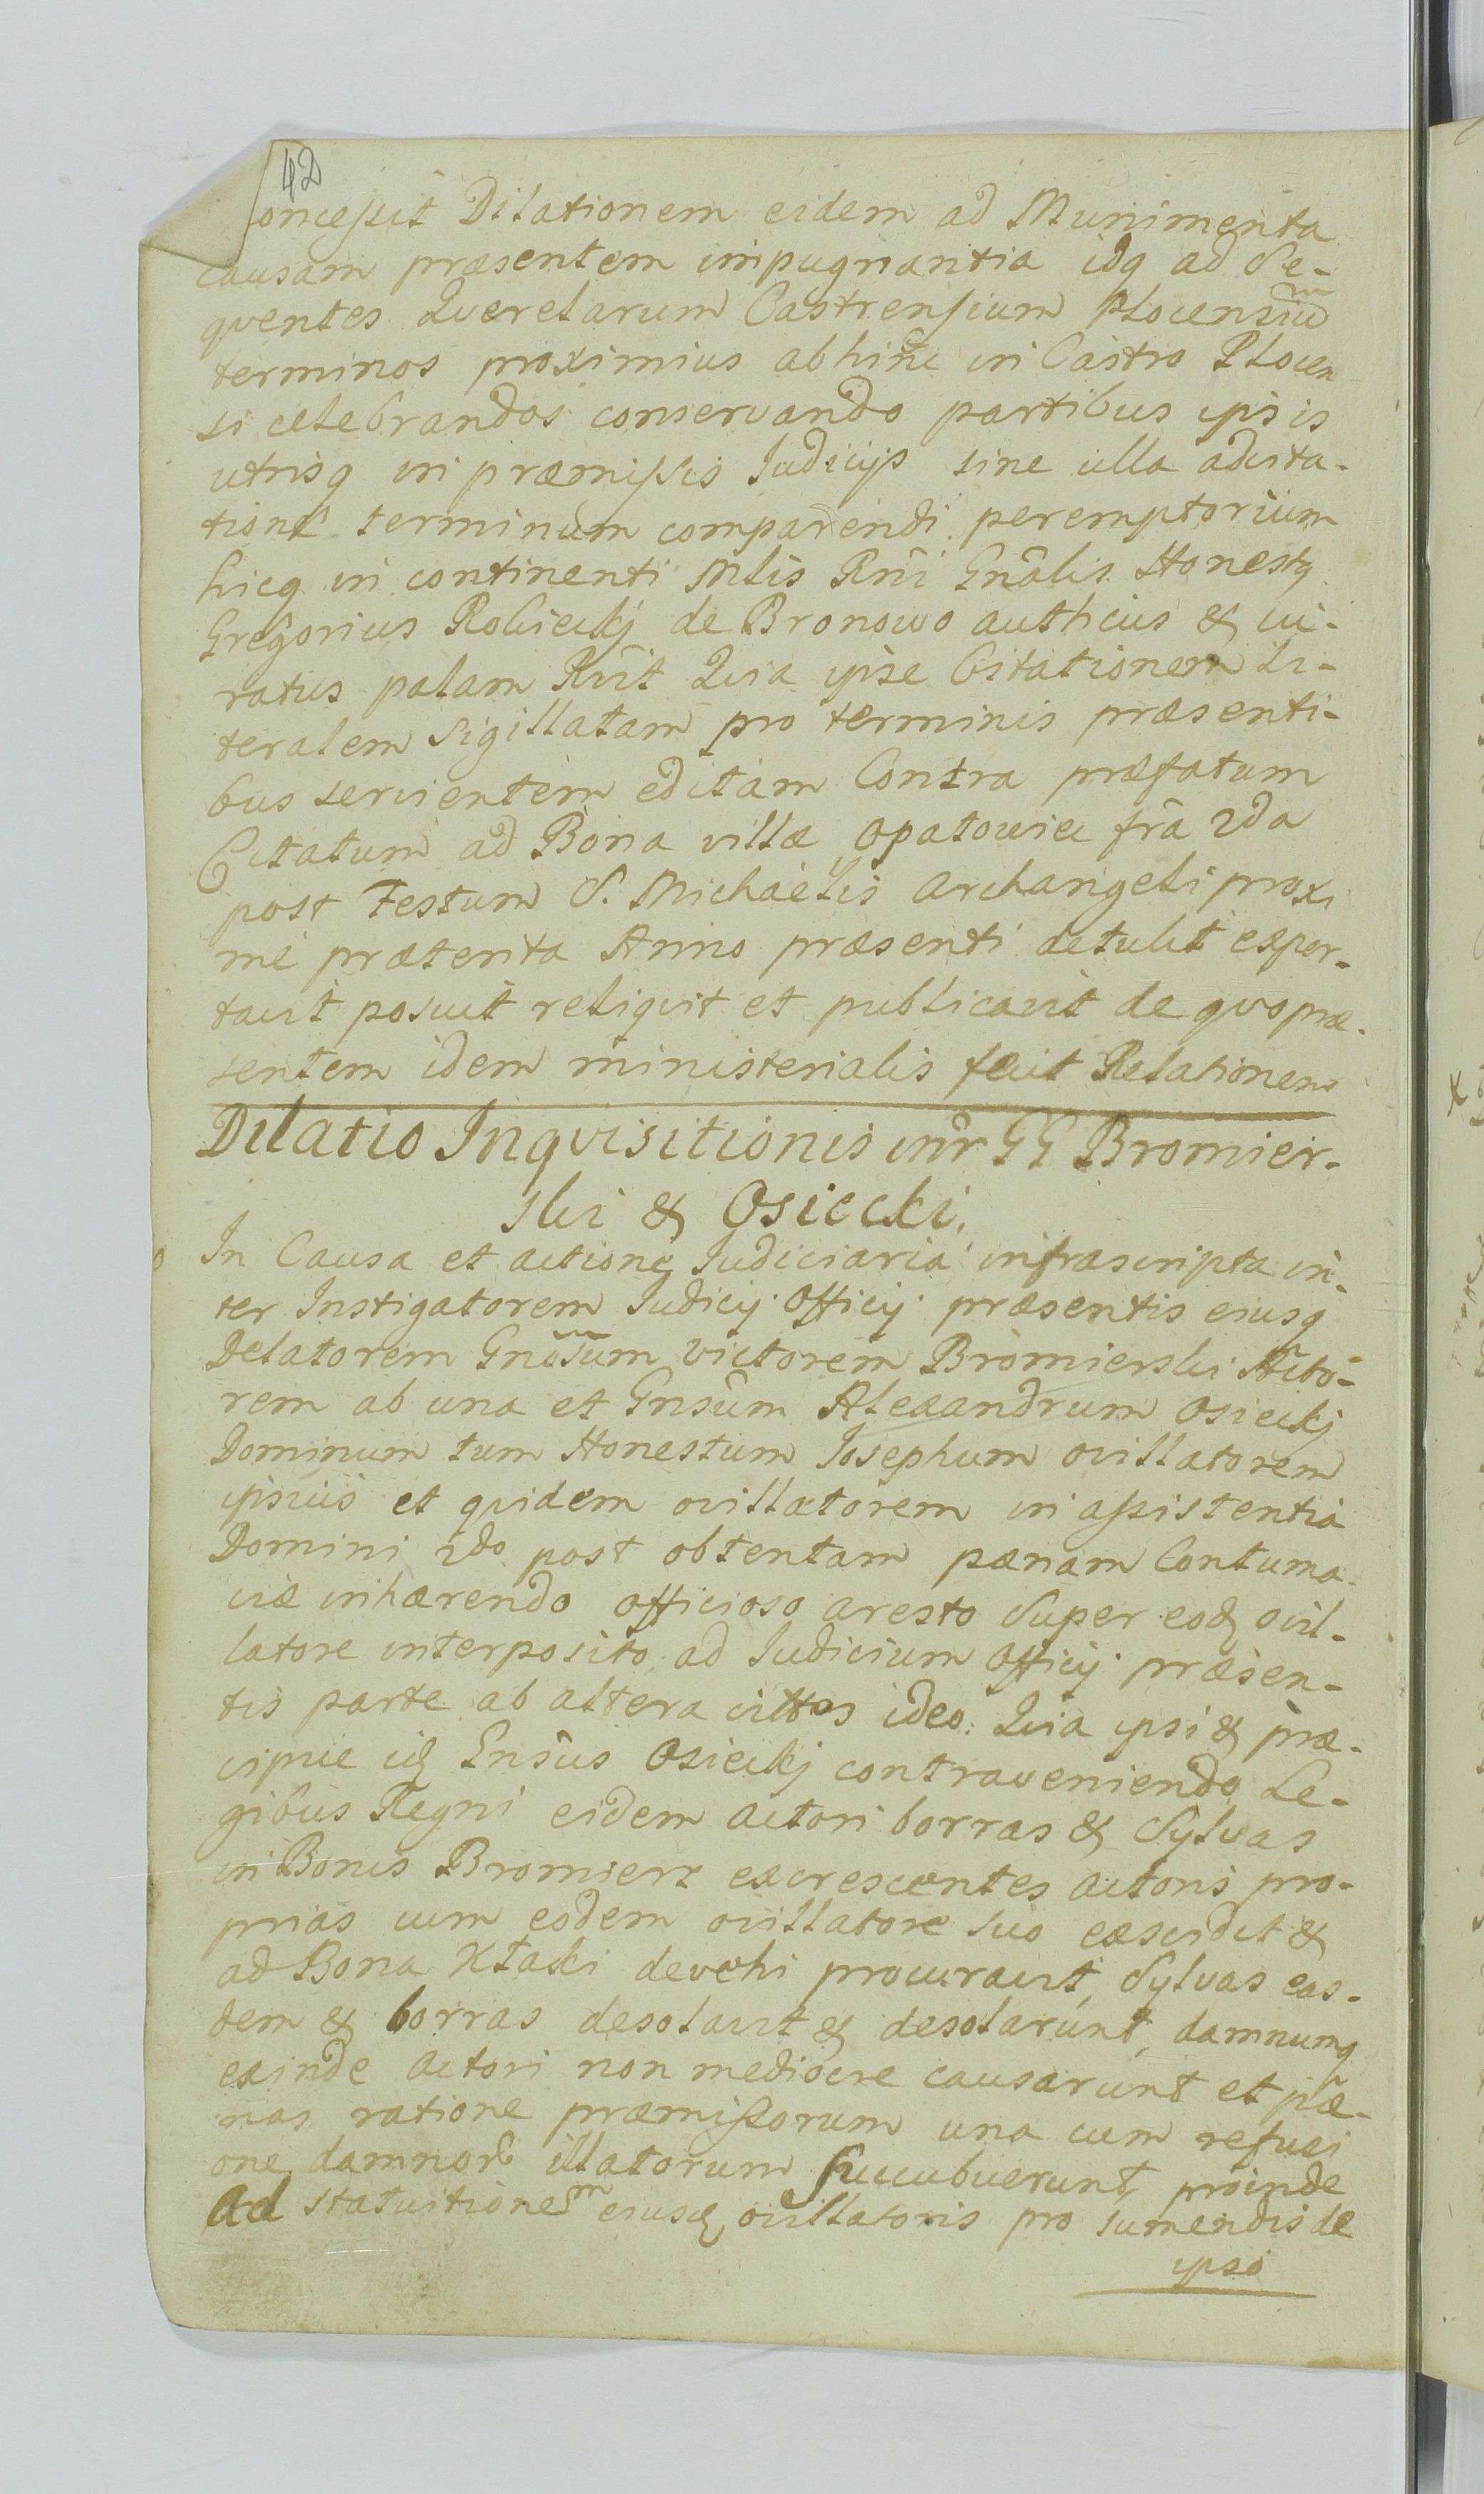 42
oncessit Dilationem eidem ad Munimenta
causam præsentem impugnantia idq ad Se-
qventes Qverelarum Castrensium Plocensiu͞m
terminos proximius abhinc in Castro Plocen
si celebrandos conservando partibus ipsis
utrisq in præmissis Iudicijs sine ulla adcita-
tione terminum comparendi peremptorium
hicq in continenti Mlis Rni Gnâlis Honestq
Gregorius Robiecky de Bronowo authcius & iu-
ratus palam Rvit Qvia ipse Citationem Li-
teralem Sigillatam pro terminis præsenti-
bus servientem editam Contra præfatum
Citatum ad Bona villæ Opatowiec fra 2da
post Festum S. Michaëlis Archangeli proxi
me præterita Anno præsenti detulit expor-
tavit posuit reliqvit et publicavit de qvo præ-
sentem idem ministerialis fecit Relationem
Dilatio Inqvisitionis intr GG Bromier-
ski & Osiecki.
In Causa et actione Iudiciaria infrascripta in-
ter Instigatorem Iudicij Officij præsentis eiusq
Delatorem Gnõsum Victorem Bromierski Acto-
rem ab una et Gnsum Alexandrum Osiecky
Dominum tum Honestum Iosephum ovillatorem
ipsius et qvidem ovillatorem in assistentia
Domini 2do post obtentam pænam Contuma-
ciæ inhærendo officioso aresto Super eodq ovil-
latore interposito ad Iudicium Officij præsen-
tis parte ab altera cittos ideo: Qvia ipsi & præ-
cipue idq Gnsus Osiecky contraveniendo Le-
gibus Regni eidem Actori borras & Sylvas
in Bonis Bromierz excrescentes Actoris pro-
prias cum eodem ovillatore suo excidit &
ad Bona Ktaki devehi procuravit, Sylvas eas-
dem & borras desolavit & desolarunt, damnumq
exinde Actori non mediocre causarunt et pæ-
nas ratione præmissorum una cum refusi
one damnor illatorum Succubuerunt proinde
Ad statuitionem eiusdq ovillatoris pro sumendis de
ipso